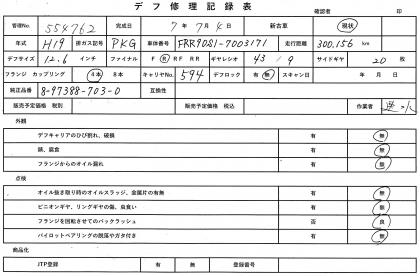 デフ修理記録表
確認者 印
管理No. 554762 完成日 7年 7月 4日 新古車 現状
年式 H19 排ガス記号 PKG 車体番号 FRR90S1-7003171 走行距離 300,156 km
デフサイズ 12.6 インチ ファイナル F R RF RR ギヤレシオ 43 / 9 サイドギヤ 20 枚
フランジ カップリング 4本 8本 キャリヤNo. 594 デフロック 有 無 スキャン日 年 月 日
純正品番 8-97388-703-0 互換性
販売予定価格 税別 販売予定価格 税込 作業者
外観
デフキャリアのひび割れ、破損 有 無
錆、腐食 有 無
フランジからのオイル漏れ 有 無
点検
オイル抜き取り時のオイルスラッジ、金属片の有無 有 無
ピニオンギヤ、リングギヤの傷、虫食い 有 無
フランジを回転させてのバックラッシュ 否 良
パイロットベアリングの脱落やガタ付き 有 無
商品化
JTP登録 有 無 登録番号